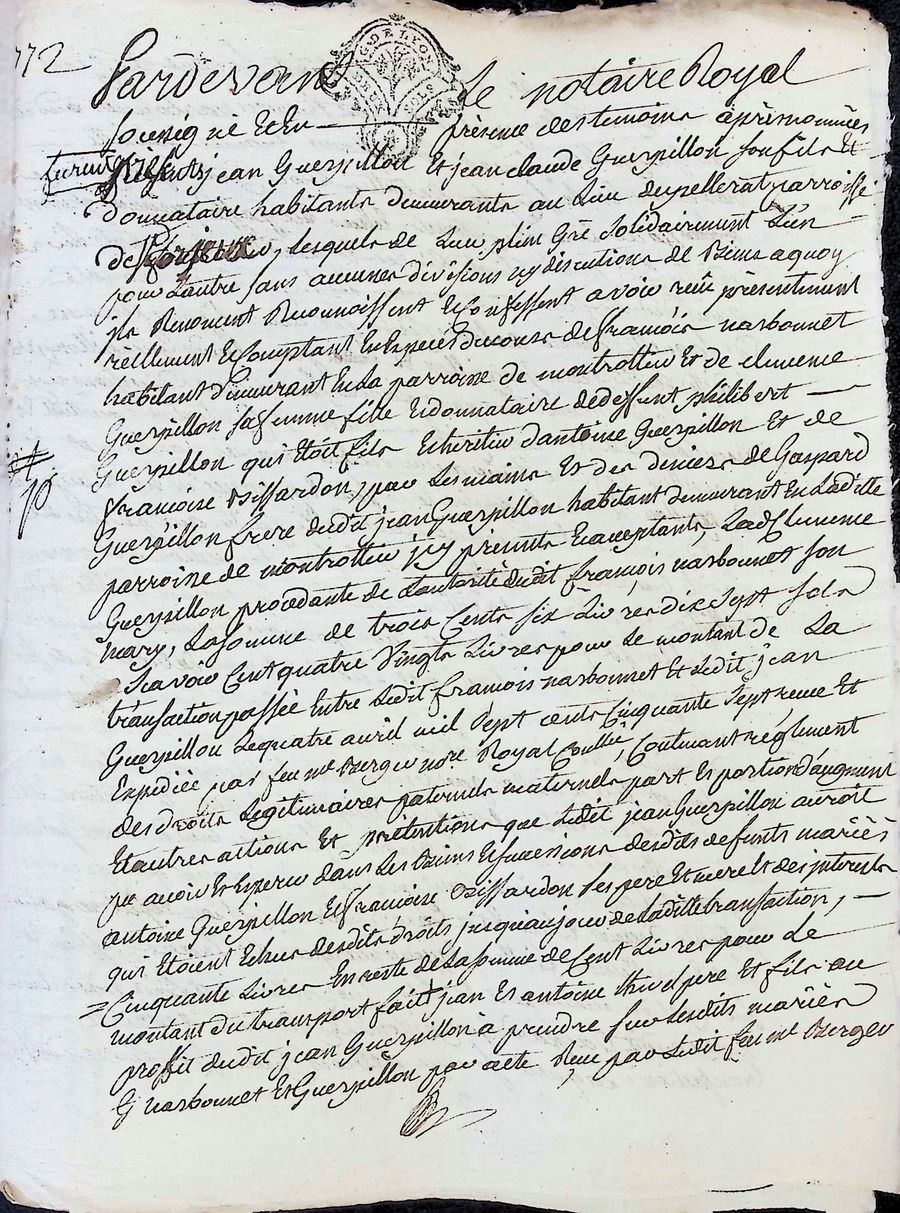 1772
Pardevant Le notaire Royal
G. DE LYON
soussigné Et En présence des temoins aprésnommés
furent présents jean Guerpillon Et jean claude Guerpillon son fils Et
donnataire habitants demeurants au Lieu du pellerat parroisse
de, Lesquels de Leur plein Gré Solidairement L'un
pour L'autre sans aucunes divisions ny discutions de Biens aquoy
ils Renoncent Reconnoissent Et Confessent avoir reçu présentement
réellement Et Comptant En Espéces du cours de françois narbonnet
habitant demeurant En La parroisse de montrottier Et de clemence
Guerpillon sa femme fille Et donnataire de deffunt philibert
Guerpillon qui Etoit fils Et heritier d'antoine Guerpillon Et de
françoise Bissardon, par Les mains Et des deniers de Gaspard
Guerpillon frere dudit jean Guerpillon habitant demeurant En Ladite
parroisse de montrottier jcy présents Et acceptants, Lad. Clemence
Guerpillon procedante de L'autorité dudit françois narbonnet son
mary, La somme de trois Cents six Livres dix sept sols
sçavoir Cent quatre Vingts Livres pour Le montant de La
transaction passée Entre Ledit françois narbonnet Et Ledit jean
Guerpillon Le quatre avril mil sept cents Cinquante sept reçue Et
Expediée par feu me Berger nore Royal, Contenant réglement
des droits Légitimaires paternels maternels part Et portion d'augment
Et autres actions Et prétentions que Ledit jean Guerpillon auroit
pu avoir Et Esperer dans Les Biens Et successions desdits defunts mariés
antoine Guerpillon Et françoise Bissardon ses pere Et mere Et des interets
qui Etoient Echus desdits droits jusqu'au jour de Laditte transaction,
Cinquante Livres En reste de La somme de Cent Livres pour Le
montant du transport fait jean Et antoine thivel pere Et fils au
proffit dudit jean Guerpillon à prendre sur Lesdits mariés
narbonnet Et Guerpillon par acte Reçu par Ledit feu me Berger